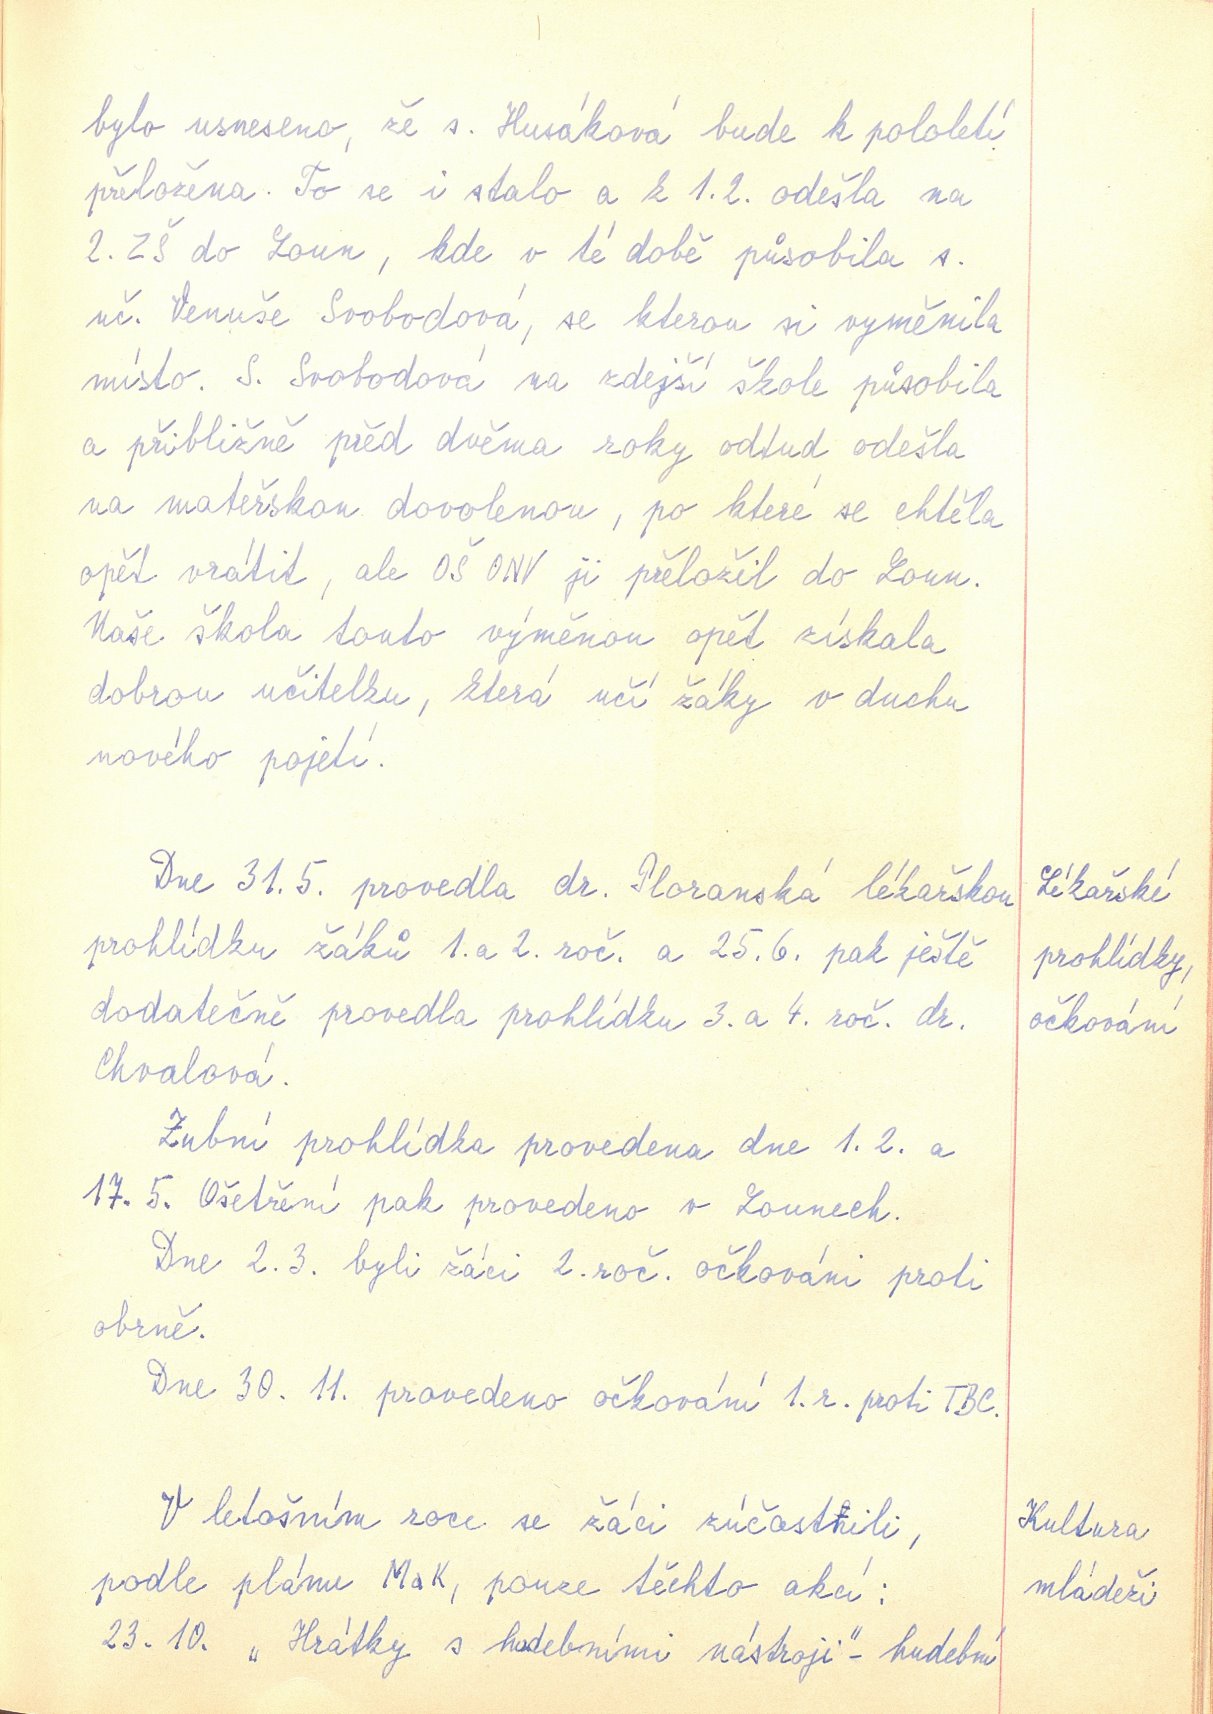 bylo usneseno, že s. Husáková bude k pololetí
přeložena. To se i stalo a k 1.2. odešla na
2. ZŠ do Loun, kde v té době působila s.
uč. Venuše Svobodová, se kterou si vyměnila
místo. S. Svobodová na zdejší škole působila
a přibližně před dvěma roky odtud odešla
na mateřskou dovolenou, po které se chtěla
opět vrátit, ale OŠ ONV ji přeložil do Loun.
Naše škola touto výměnou opět získala
dobrou učitelku, která učí žáky v duchu
nového pojetí.
Dne 31.5. provedla dr. Ploranská lékařskou
Lékařské
prohlídku žáků 1. a 2. roč. a 25.6. pak ještě
prohlídky,
dodatečně provedla prohlídku 3. a 4. roč. dr.
očkování
Chvalová.
Zubní prohlídka provedena dne 1. 2. a
17. 5. Ošetření pak provedeno v Lounech.
Dne 2.3. byli žáci 2. roč. očkováni proti
obrně.
Dne 30. 11. provedeno očkování 1. r. proti TBC.
V letošním roce se žáci zúčastnili,
Kultura
podle plánu MaK, pouze těchto akcí:
mládeži
23. 10. „Hrátky s hudebními nástroji" - hudební